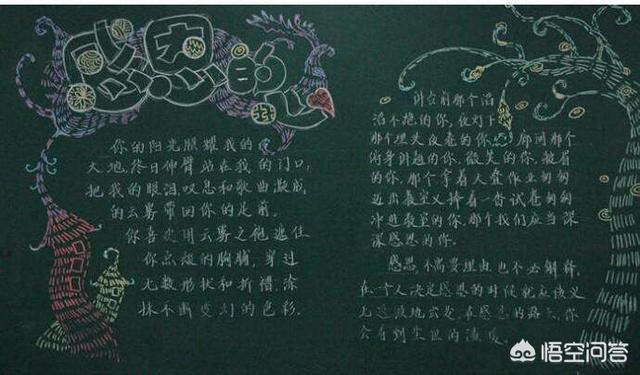 感恩
你的阳光照耀我的
大地,终日伸臂站在我的门口,
把我的眼泪叹息和歌曲凝成
的云雾带回你的足前。
你喜欢用云雾之袍遮住
你点缀的胸脯,穿过
无数形状和折褶涂
抹不断变幻的色彩。
讲台前那个滔
滔不绝的你,夜灯下
那个埋头改卷的你,廊间那个
俯身讲题的你,微笑的你,皱眉
的你,那个拿着人叠作业匆匆
进出教室又捧着一沓试卷匆匆
冲进教室的你,那个我们应当深
深感恩的你。
感恩,不需要理由也不必解释,
在一个人决定感恩的时候就应该义
无反顾地出发,在感恩的路上,你
会看到尘世的温暖。
悟空问答